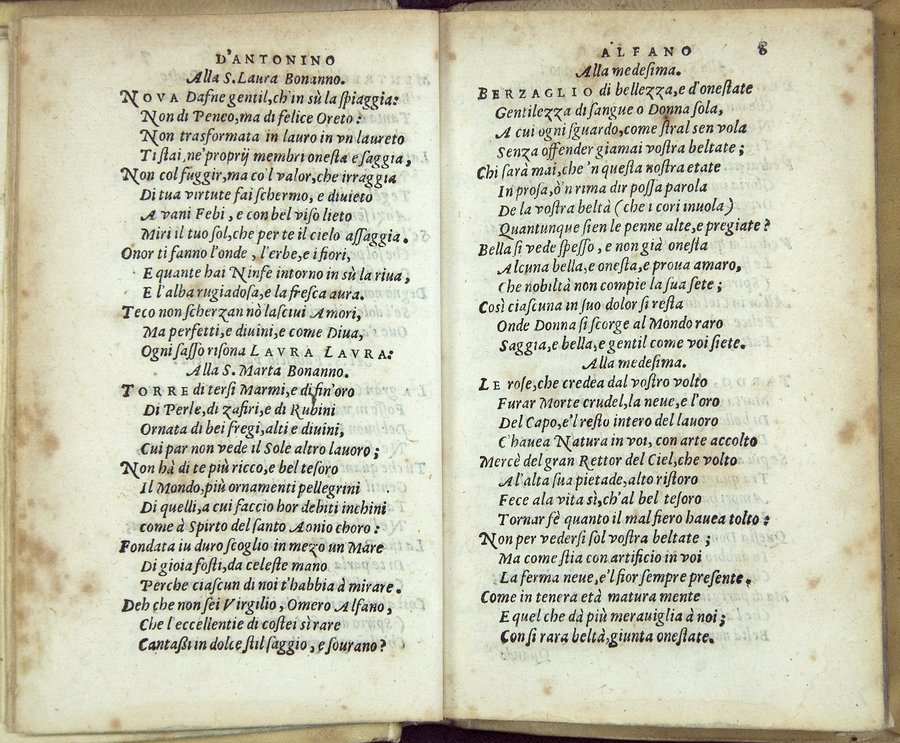 D'ANTONINO
Alla S. Laura Bonanno.
NOVA Dafne gentil, ch'in sù la spiaggia:
Non di Peneo, ma di felice Oreto:
Non trasformata in lauro in vn laureto
Ti stai, ne' proprij membri onesta e saggia,
Non col fuggir, ma co'l valor, che irraggia
Di tua virtute fai schermo, e diuieto
A vani Febi, e con bel viso lieto
Miri il tuo sol, che per te il cielo assaggia.
Onor ti fanno l'onde, l'erbe, e i fiori,
E quante hai Ninfe intorno in sù la riua,
E l'alba rugiadosa, e la fresca aura.
Teco non scherzan nò lasciui Amori,
Ma perfetti, e diuini, e come Diua,
Ogni sasso risona LAVRA LAVRA:
Alla S. Marta Bonanno.
TORRE di tersi Marmi, e di fin'oro
Di Perle, di zafiri, e di Rubini
Ornata di bei fregi, alti e diuini,
Cui par non vede il Sole altro lauoro;
Non hà di te più ricco, e bel tesoro
Il Mondo, più ornamenti pellegrini
Di quelli, a cui faccio hor debiti inchini
come à Spirto del santo Aonio choro:
Fondata iu duro scoglio in mezo un Mare
Di gioia fosti, da celeste mano
Perche ciascun di noi t'habbia à mirare.
Deh che non sei Virgilio, Omero Alfano,
Che l'eccellentie di costei sì rare
Cantassi in dolce stil saggio, e sourano?
ALFANO 8
Alla medesima.
BERZAGLIO di bellezza, e d'onestate
Gentilezza di sangue o Donna sola,
A cui ogni sguardo, come stral sen vola
Senza offender giamai vostra beltate;
Chi sarà mai, che 'n questa nostra etate
In prosa, ò 'n rima dir possa parola
De la vostra beltà (che i cori inuola)
Quantunque sien le penne alte, e pregiate?
Bella si vede spesso, e non già onesta
Alcuna bella, e onesta, e proua amaro,
Che nobiltà non compie la sua sete;
Così ciascuna in suo dolor si resta
Onde Donna si scorge al Mondo raro
Saggia, e bella, e gentil come voi siete.
Alla medesima.
LE rose, che credea dal vostro volto
Furar Morte crudel, la neue, e l'oro
Del Capo, e'l resto intero del lauoro
C'hauea Natura in voi, con arte accolto
Mercè del gran Rettor del Ciel, che volto
A l'alta sua pietade, alto ristoro
Fece ala vita sì, ch'al bel tesoro
Tornar fè quanto il mal fiero hauea tolto:
Non per vedersi sol vostra beltate;
Ma come stia con artificio in voi
La ferma neue, e'l fior sempre presente.
Come in tenera età matura mente
E quel che dà più merauiglia à noi;
Con si rara beltà, giunta onestate.